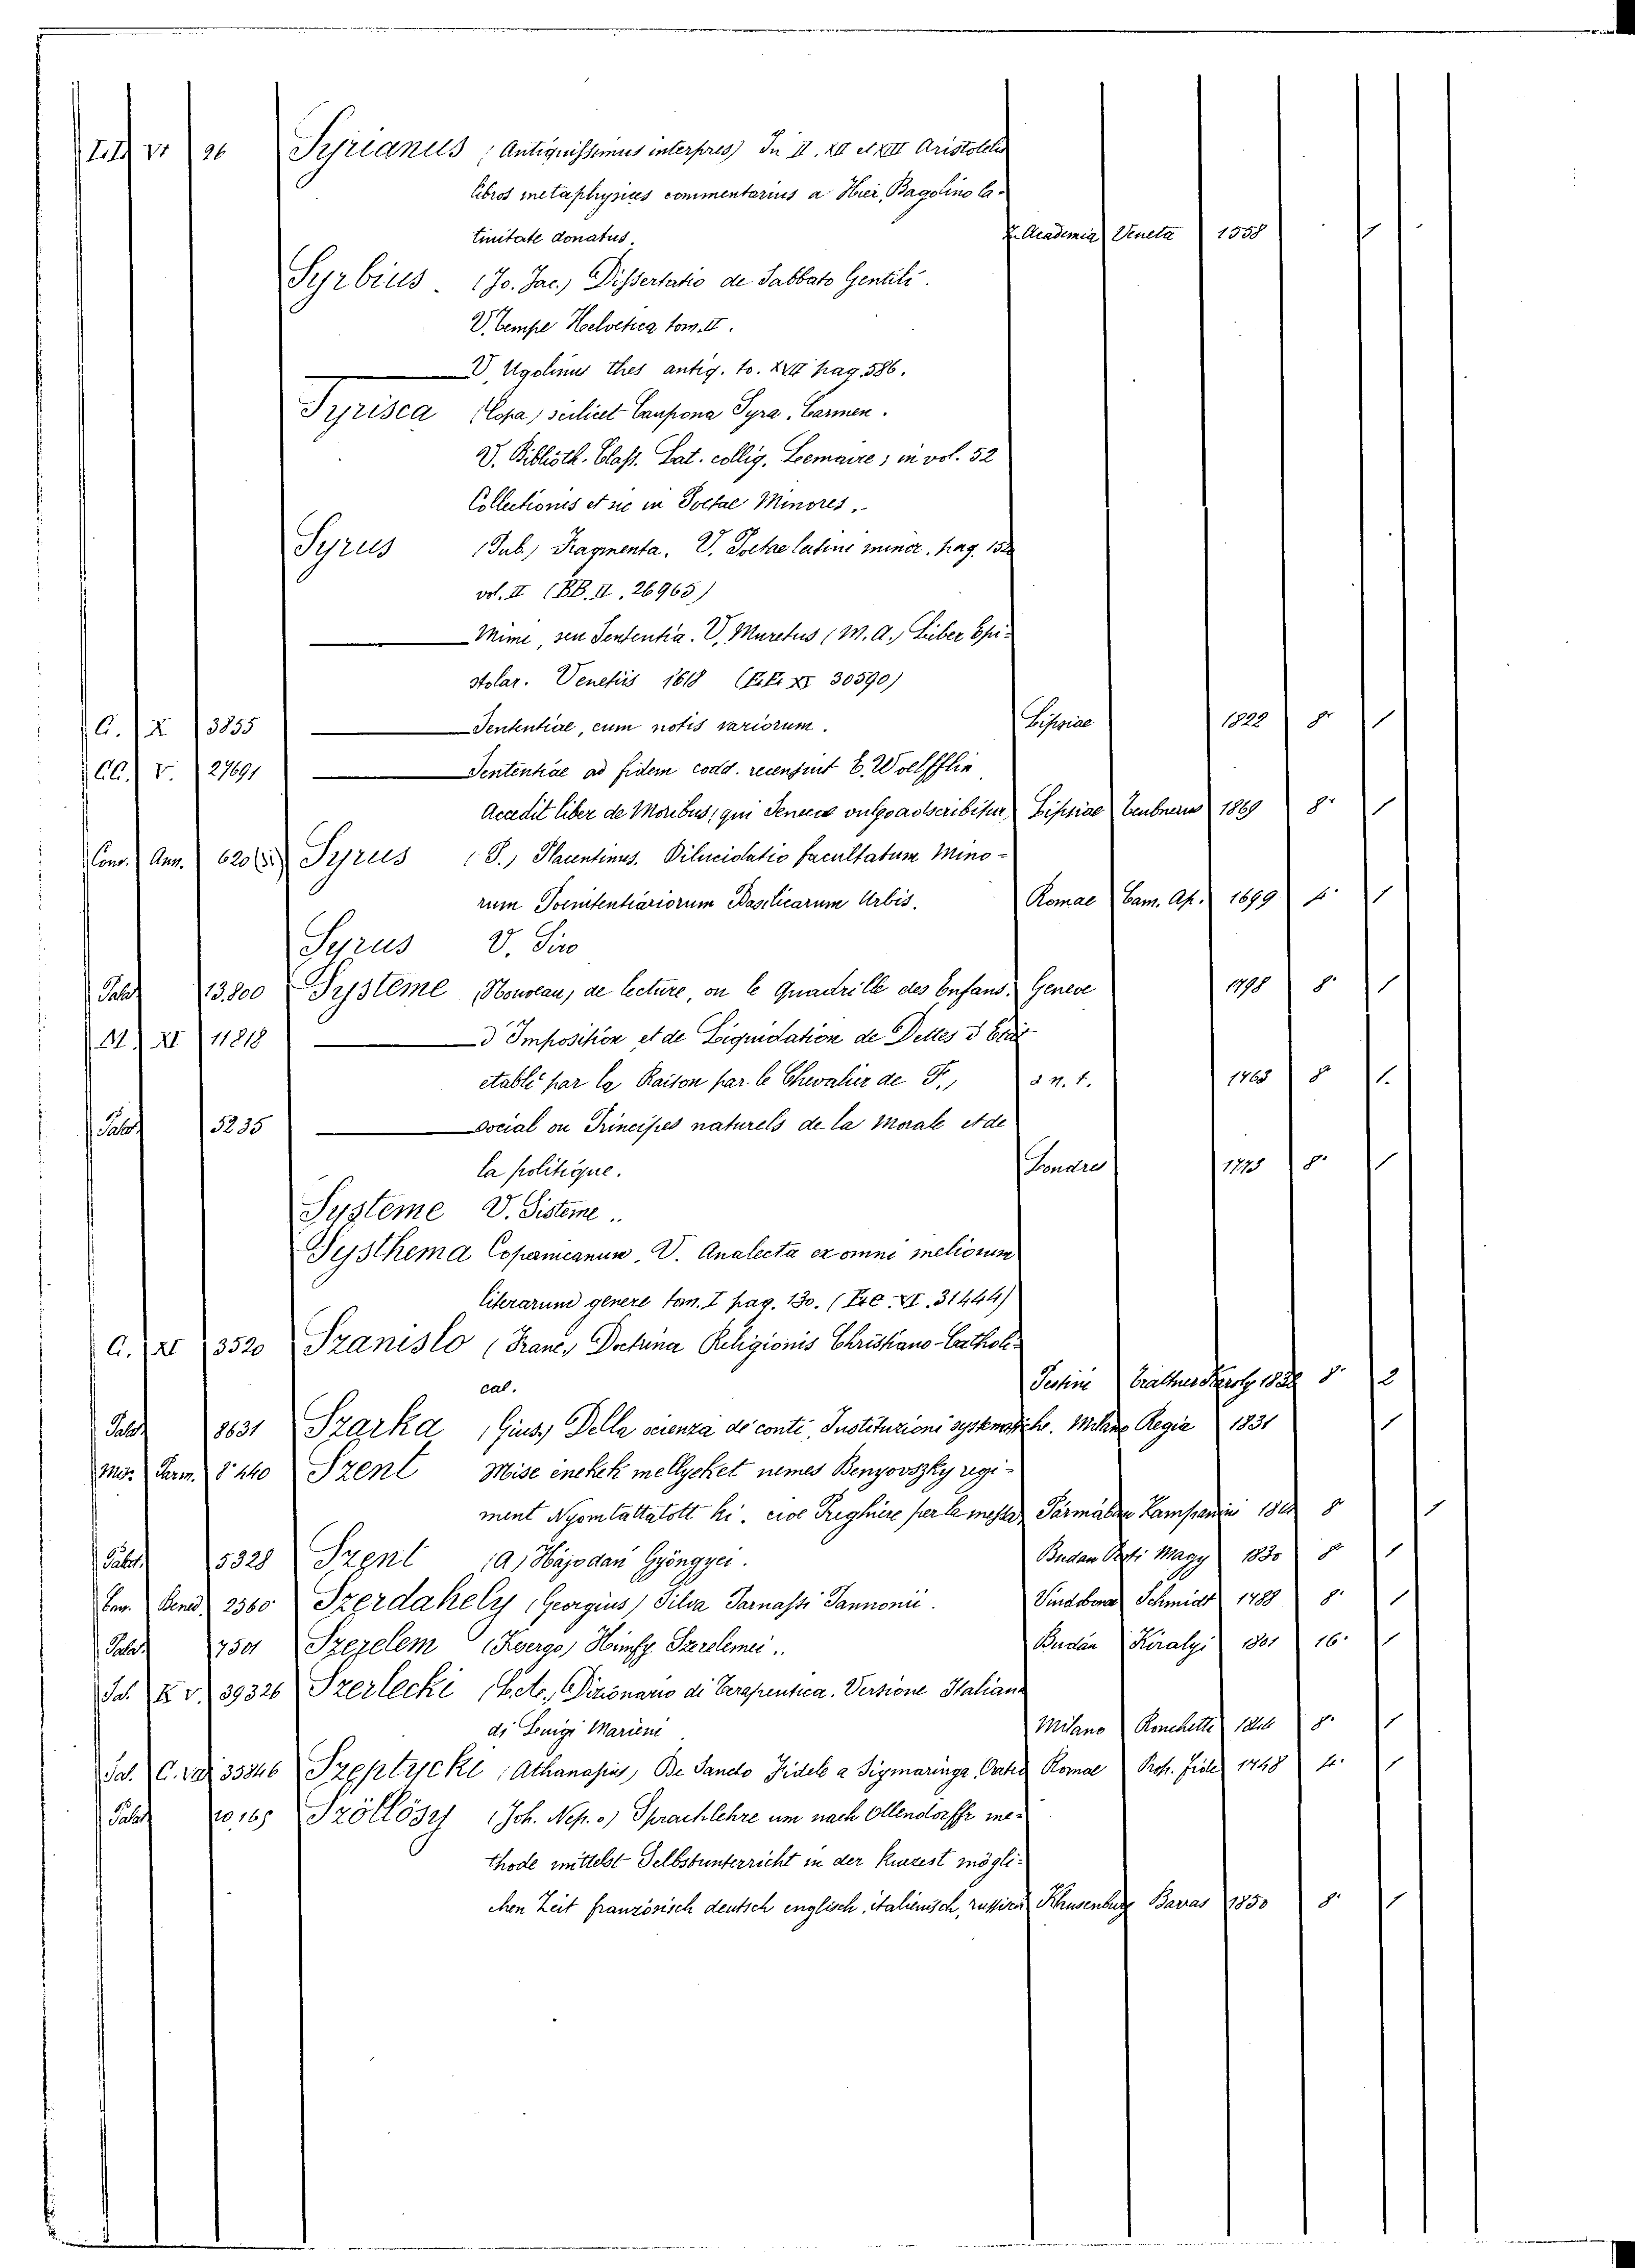 VI 96 Syrianus (Antiquissimus interpres) In II. XII et XIII Aristotelis
libros metaphysices commentarius a Hier. Bagolino la-
tinitate donatus. Academia Veneta 1558 1
Syrbius. (Jo. Jac.) Dissertatio de Sabbato Gentili.
V. Tempe Helvetica tom. II.
V. Ugolinus thes antiq. to. XVII pag. 586.
Syrisca (Copa) scilicet Caupona Syra. Carmen.
V. Biblioth. Class. Lat. collig. Lemaire; in vol. 52
Collectionis et sic in Poetae Minores.
Syrus (Pub.) Fragmenta. V. Poetae latini minor. pag. 152
vol. II (BB. II. 26965)
Mimi, seu Sententia. V. Muretus (M. A.) Liber Epi-
stolar. Venetiis 1618 30590)
C. X 3855 Sententiae, cum notis variorum. Lipsiae 1822 8º 1
CC. V. 27691 Sententiae ad fidem codd. recensuit E. Woelfflin
Accedit liber de Moribus, qui Senecae vulgo adscribitur Lipsiae Teubnerus 1869 8º 1
Conv. Ann. 620 Syrus (P.) Placentinus. Dilucidatio facultatum Mino-
rum Poenitentiariorum Basilicarum Urbis. Romae Cam. Ap. 1699 1
Syrus V. Siro
Palat 13.800 Systeme (Nouveau) de lecture, ou le Quadrille des Enfans. Geneve 1798 8º 1
XI 11818 d'Imposition et de Liquidation de Dettes d'Etat
etabli par la Raison par le Chevalier de F., s n. t. 1763 8 1.
Palat 5235 social ou Principes naturels de la Morale et de
la politique. Londres 8º 1
Systeme V. Sisteme..
Systhema Copernicanum. V. Analecta ex omni meliorum
literarum genere tom. I pag. 130. 31444)
C. XI 3520 Szanislo (Franc.) Doctrina Religionis Christiano-Catholi-
cal. Pestini Trattner Karoly 1832 8º 2
Palat 8631 Szarka (Gius.) Della scienza de' conti, Instituzioni systematiche. Milano Regia 1831 1
Mis. Parm. 8º 440 Szent Mise enekek mellyeket nemes Benyovszky regi-
ment Nyomtattatott ki. cioe Preghiere per la messa Parmában 8 1
Palat. 5328 Szent (A) Hajodan Gyöngyei. Budan Magy 1830 8º 1
Bened. 2360 Szerdahely (Georgius) Silva Parnassi Pannonii. Vindobona Schmidt 1788 8º 1
Palat. 7501 Szerelem (Kesergo) Himfy Szerelmei.. Budán Királyi 1801 16º 1
V. 39326 Szerlecki Dizionario di Terapeutica. Versione Italiana
di Luigi Marieni Milano Ronchetti 8º 1
Sal. C. 35846 Szeptycki (Athanasius) De Sancto Fidele a Sigmaringa, Oratio Romae Prop. Fide 1748 4º 1
Palat 10.165 Szöllösy (Joh. Nep. v) Sprachlehre um nach Ollendorffs me-
thode mittelst Selbstunterricht in der kürzest mögli-
chen Zeit französisch deutsch englisch, italienisch, Barras 1850 8º 1